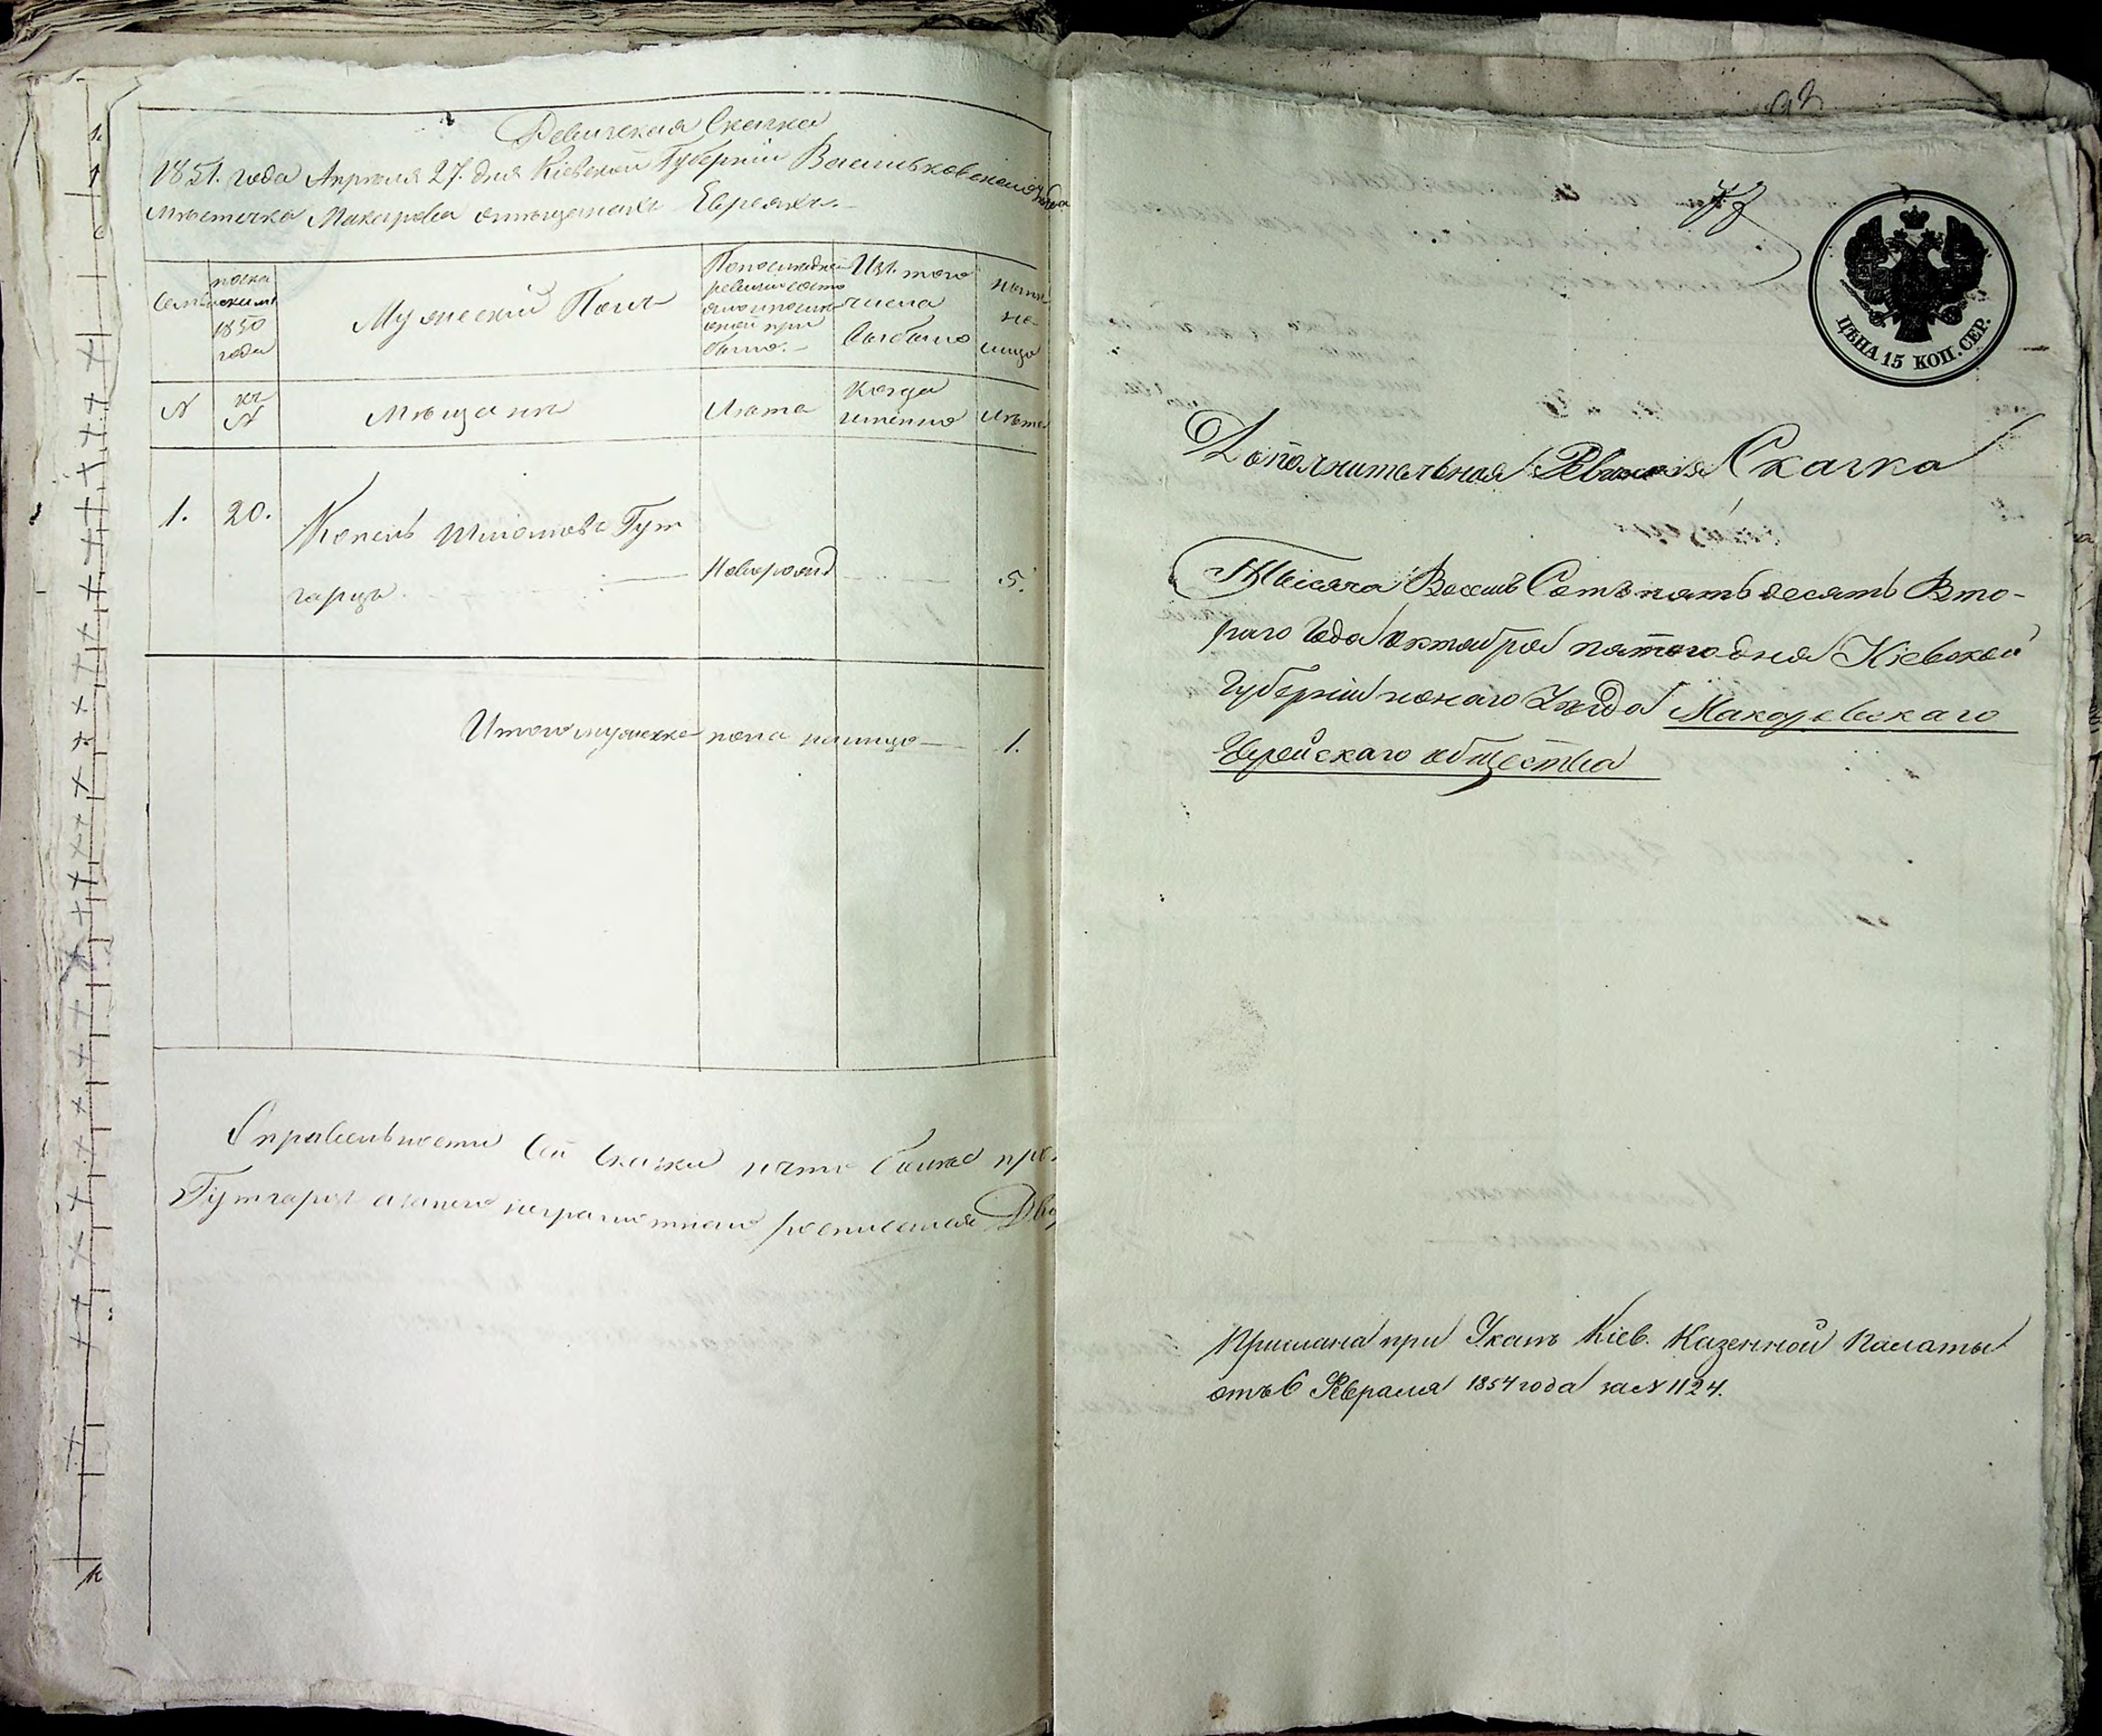 Ревизская Сказка
1851. года Апреля 27. дня Кіевской Губерніи Васильковскаго Уезда
местечка Макарова о мещанахъ Евреяхъ.
Семьи
1850
года
Мужескій Полъ
По последней
ревизіи состояло
и после
оной при
было.
Изъ того
числа
выбыло
Ныне
на
лицо
№
№
Мещане
Лета
Когда
именно
Лета
1.
20.
Копель Шліомовъ Гут
гарцъ
Новорожд
5.
Итого мужеска пола налицо
1.
Справельности сей сказки что
Гутгарцъ а занего неграмотнаго росписался
92
ЦѢНА 15 КОП. СЕР.
Дополнительная Ревизская Сказка
Тысяча Восемь Сотъ пятьдесятъ Вто-
раго Года Октября пятого дня Кіевской
Губерніи и онаго Уезда Макаровскаго
Еврейскаго общества
Прислана при Указе Кіев. Казенной Палаты
отъ 6 Февраля 1854 года за № 1124.